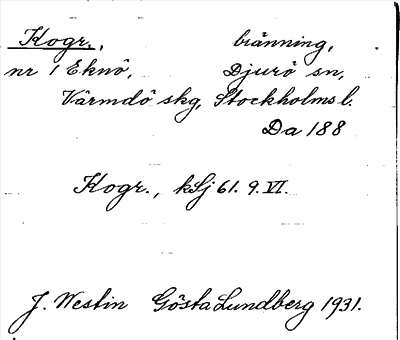 Kogr., bränning,
nr 1 Eknö, Djurö sn,
Värmdö skg, Stockholms l.
Da 188
Kogr., kLj 61. 9. VI.
J. Westin Gösta Lundberg 1931.